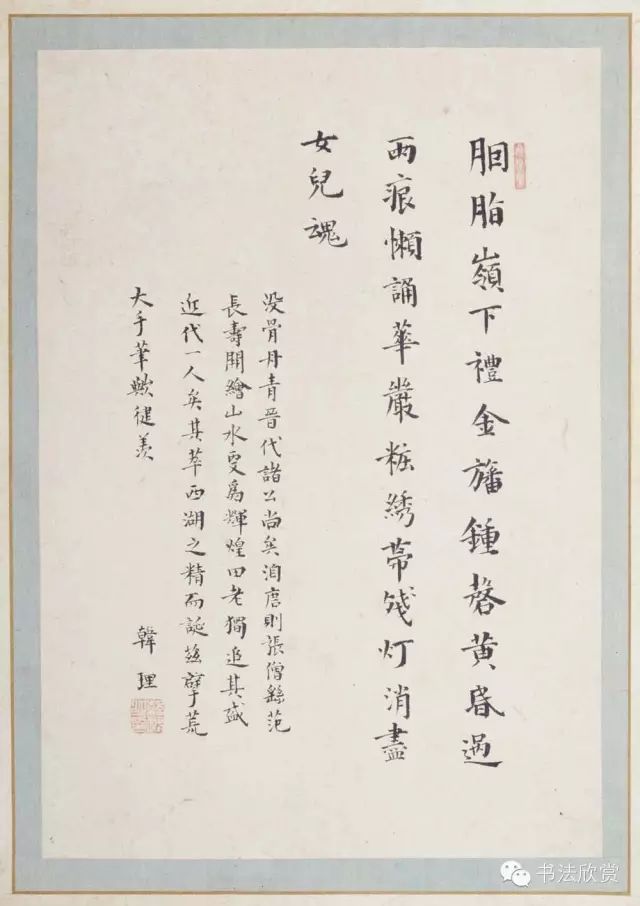 胭脂嶺下禮金旛鍾磬黄昏過
雨痕懶誦華嚴粧綉帶残灯消盡
女兒魂
没骨丹青晋代諸公尚矣洎唐則張僧繇范
長壽開繪山水更為輝煌田老獨追其盛
近代一人矣其萃西湖之精而誕茲擘荒
大手筆歟徤羡
韓理
书法欣赏